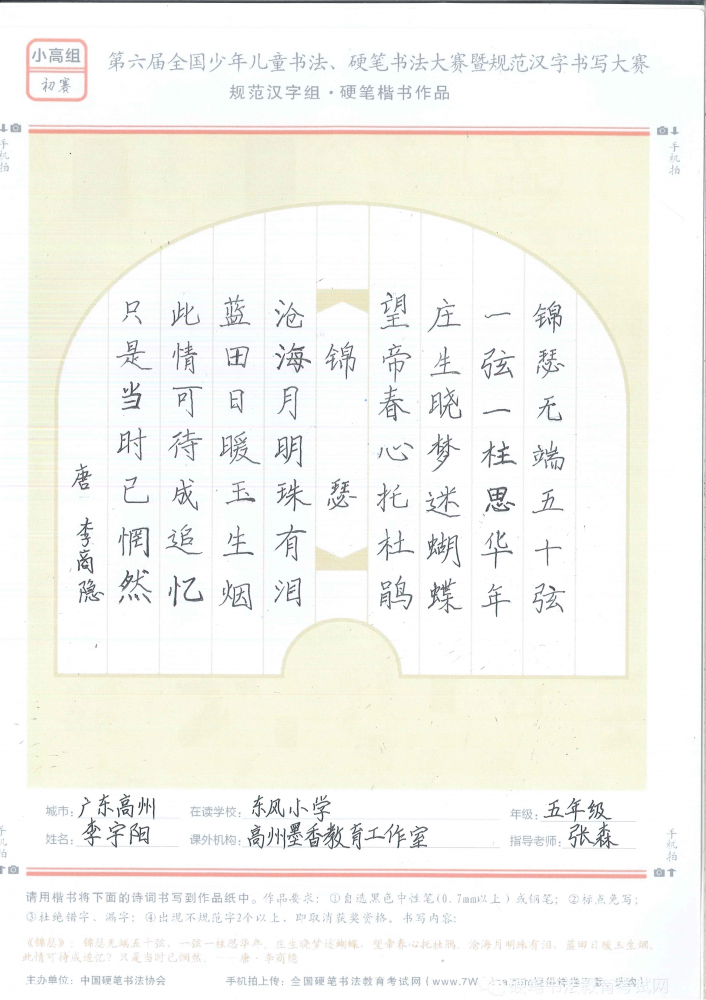 小高组
初赛
第六届全国少年儿童书法、硬笔书法大赛暨规范汉字书写大赛
规范汉字组·硬笔楷书作品
手机拍
手机拍
锦瑟无端五十弦
一弦一柱思华年
庄生晓梦迷蝴蝶
望帝春心托杜鹃
锦瑟
沧海月明珠有泪
蓝田日暖玉生烟
此情可待成追忆
只是当时已惘然
唐 李商隐
城市：广东高州 在读学校：东风小学 年级：五年级
姓名：李宇阳 课外机构：高州墨香教育工作室 指导老师：张森
手机拍
手机拍
请用楷书将下面的诗词书写到作品纸中。作品要求：①自选黑色中性笔(0.7mm以上)或钢笔；②标点免写；
③杜绝错字、漏字；④出现不规范字2个以上，即取消获奖资格。书写内容：
《锦瑟》：锦瑟无端五十弦，一弦一柱思华年。庄生晓梦迷蝴蝶，望帝春心托杜鹃。沧海月明珠有泪，蓝田日暖玉生烟。
此情可待成追忆？只是当时已惘然。——唐·李商隐
主办单位：中国硬笔书法协会 手机拍上传：全国硬笔书法教育考试网(www.7W
硬笔书法教育考试网